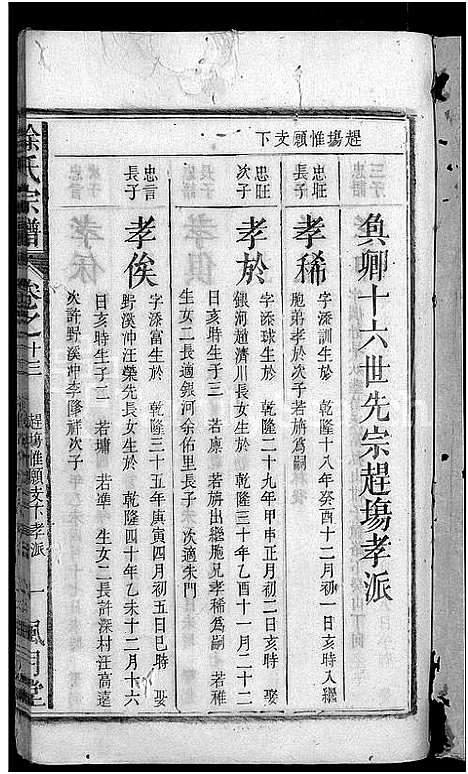 趕塲惟願支下
奐卿十六世先宗趕塲孝派
忠旺長子
孝稀
字添訓生於 乾隆十八年癸酉十二月初一日亥時入繼
胞弟孝於次子若旂為嗣
忠旺次子
孝於
字添球生於 乾隆二十九年甲申正月初二日亥時 娶
銀河趙濟川長女生於 乾隆三十年乙酉十一月二十二
日亥時生子三 若廪 若旂出繼胞兄孝稀為嗣 若稚
生女二長適銀河余佑里長子 次適朱門
忠言長子
孝俟
字添富生於 乾隆三十五年庚寅四月初五日巳時 娶
野溪冲汪榮先長女生於 乾隆四十年乙未十二月十六
日亥時生子二 若墉 若準 生女二長許深村汪高遠
次許野溪冲李隆祥次子
徐氏宗譜
卷之十三
趕塲惟願支下孝派
一
風月堂